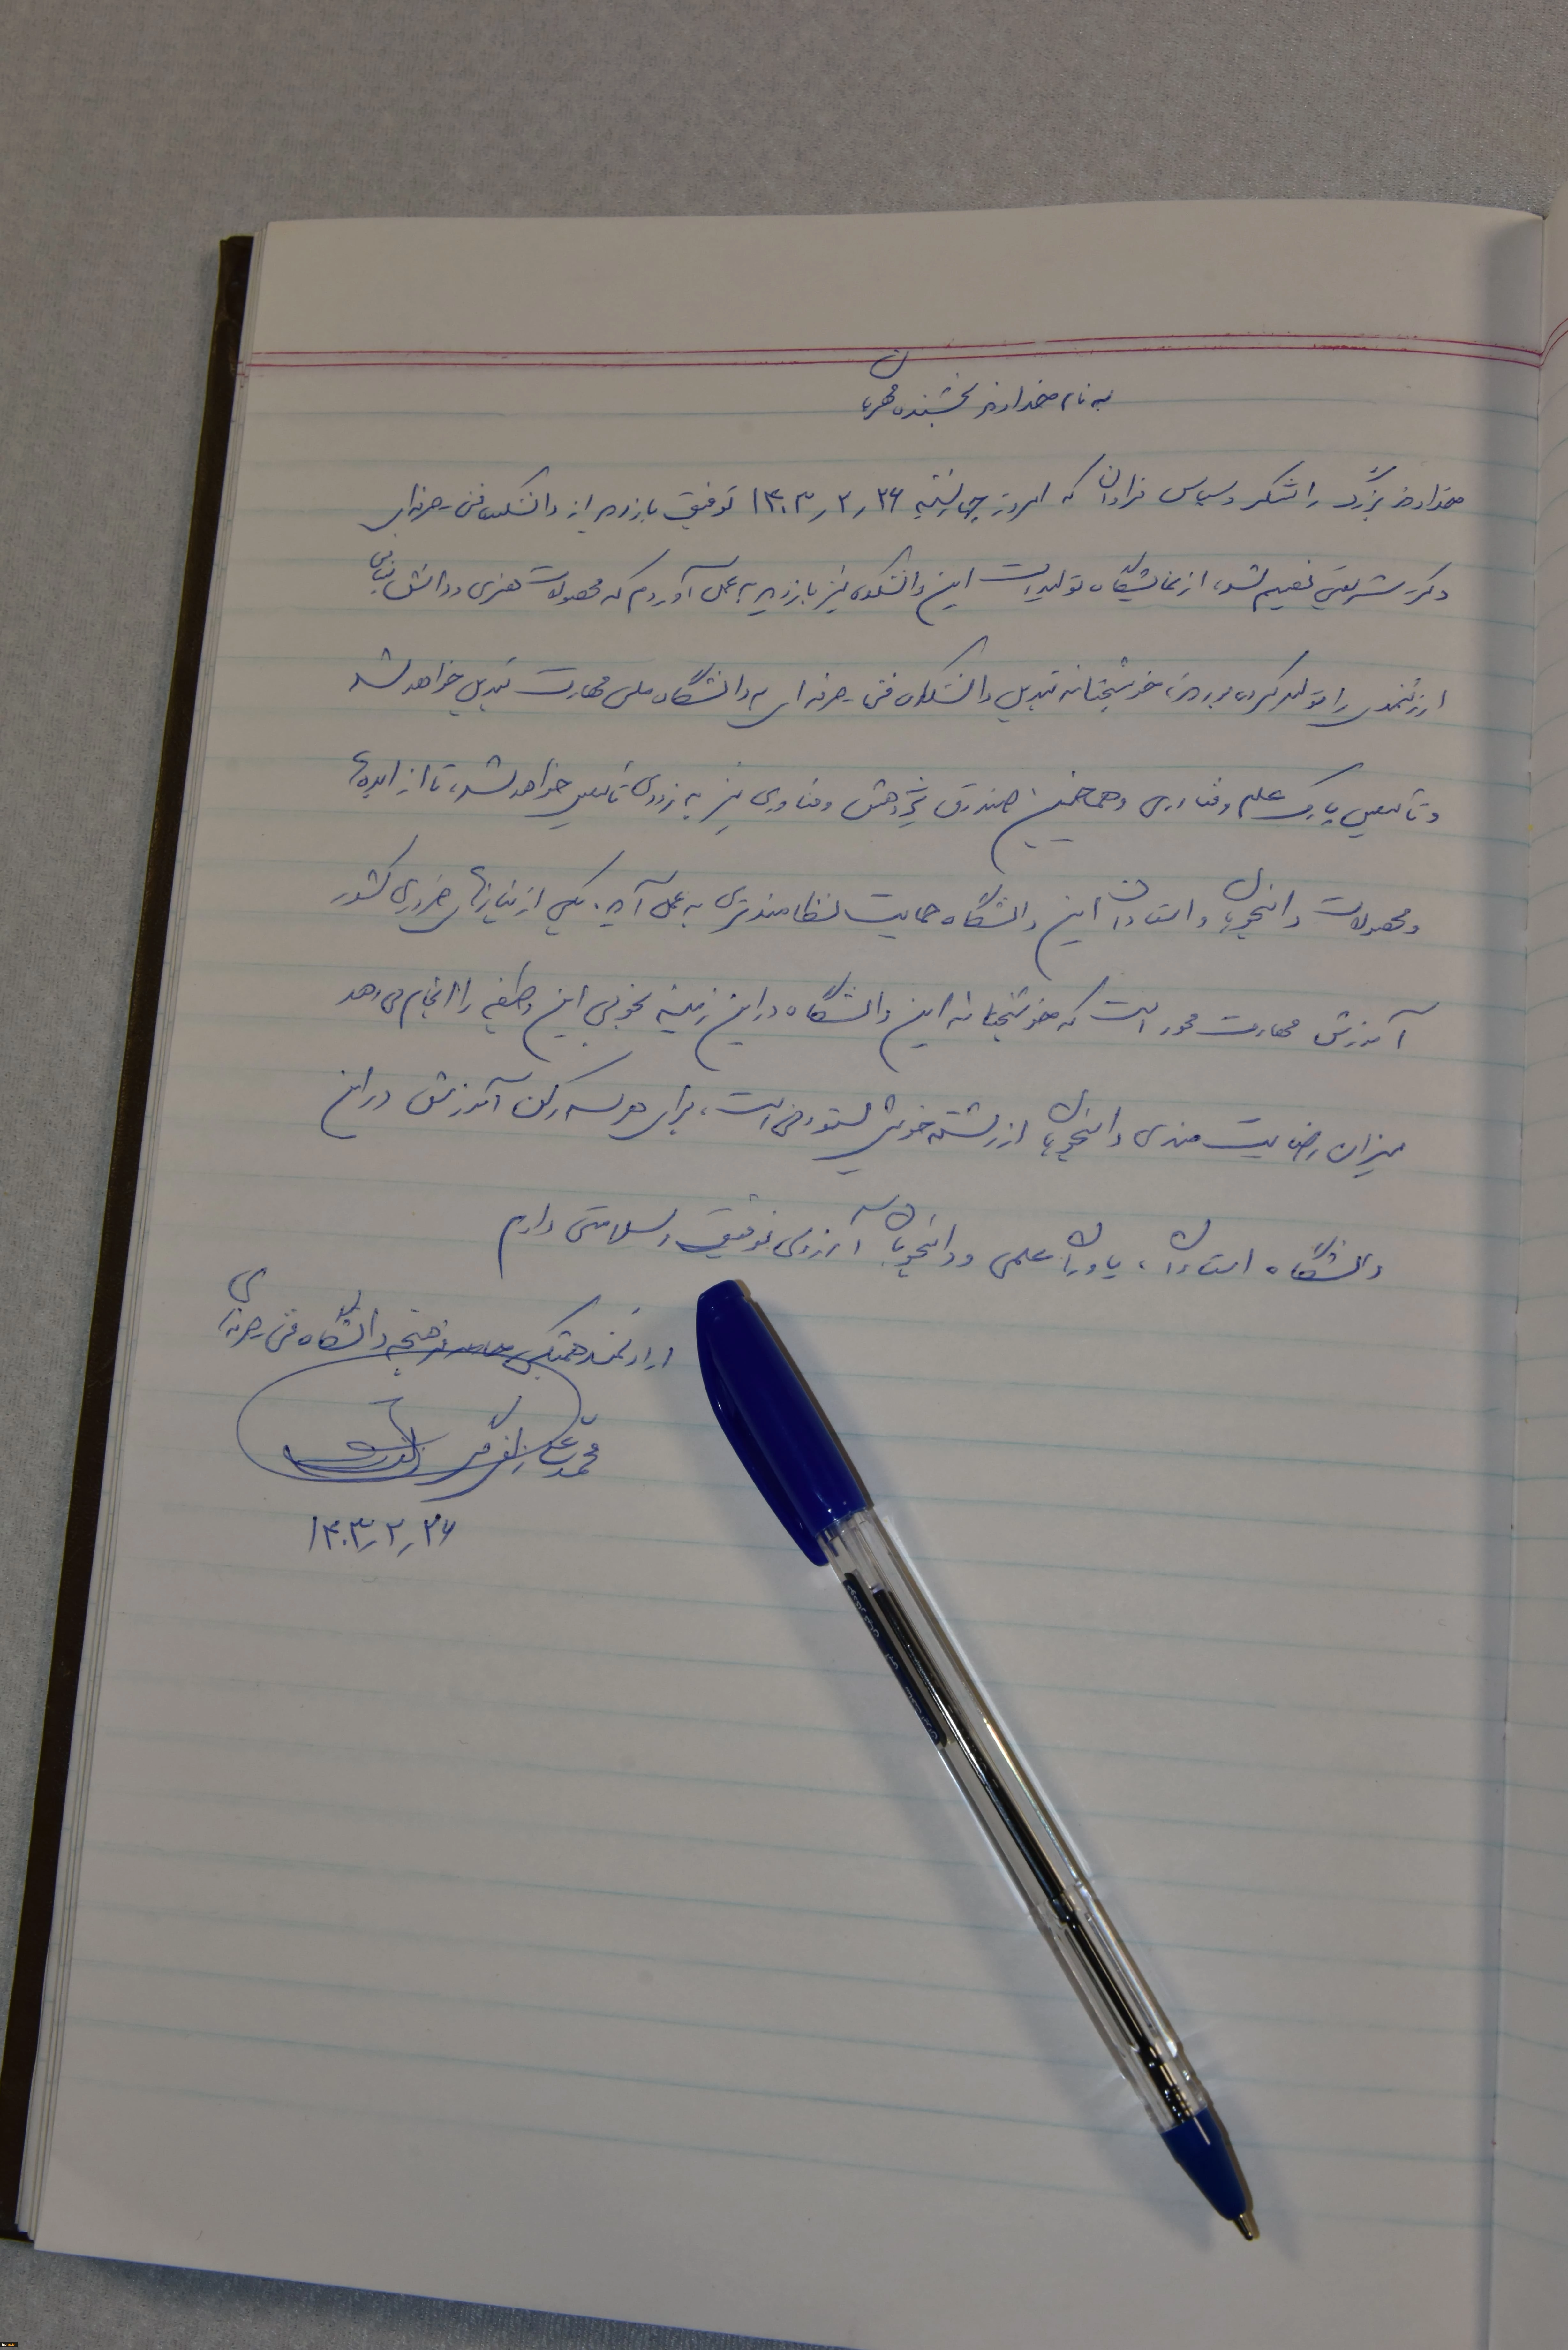 به نام خداوند بخشنده مهربان
خداوند بزرگ را شکر و سپاس فراوان که امروز چهارشنبه ۱۴۰۳٫۲٫۲۶ توفیق بازدید از دانشکده فنی حرفه‌ای
دکتر شریعتی نصیبم شد، از نمایشگاه تولیدات این دانشکده نیز بازدید به عمل آوردم که محصولات هنری و دانش بنیانی
ارزشمندی را تولید کرده بودند، خوشبختانه تبدیل دانشکده فنی حرفه‌ای به دانشگاه ملی مهارت تبدیل خواهد شد
و تاسیس پارک علم و فناوری و همچنین صندوق پژوهش و فناوری نیز به زودی تاسیس خواهد شد، تا از ایده‌های
و محصولات دانشجویان و استادان این دانشگاه حمایت نظامندتری به عمل آید. یکی از نیازهای ضروری کشور
آموزش مهارت محور است که خوشبختانه این دانشگاه در این زمینه بخوبی این وظیفه را انجام می‌دهد
میزان رضایت مندی دانشجویان از رشته خویش ستودنی است، برای هر سه رکن آموزش در این
دانشگاه استادان، یاوران علمی و دانشجویان آرزوی توفیق و سلامتی دارم
ارادتمند همگی دانشگاه فنی حرفه‌ای
محمدعلی زلفی گل
۱۴۰۳٫۲٫۲۶